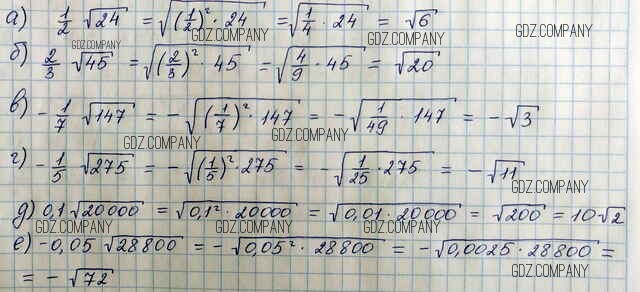 а) 1/2 √24 = √((1/2)² · 24) = √(1/4 · 24) = √6
GDZ.COMPANY GDZ.COMPANY GDZ.COMPANY
б) 2/3 √45 = √((2/3)² · 45) = √(4/9 · 45) = √20
GDZ.COMPANY GDZ.COMPANY
в) -1/7 √147 = -√((1/7)² · 147) = -√(1/49 · 147) = -√3
GDZ.COMPANY GDZ.COMPANY
г) -1/5 √275 = -√((1/5)² · 275) = -√(1/25 · 275) = -√11
GDZ.COMPANY
д) 0,1 √20000 = √(0,1² · 20000) = √(0,01 · 20000) = √200 = 10√2
GDZ.COMPANY GDZ.COMPANY GDZ.COMPANY GDZ.COMPANY
е) -0,05 √28800 = -√(0,05² · 28800) = -√(0,0025 · 28800) =
GDZ.COMPANY
= -√72